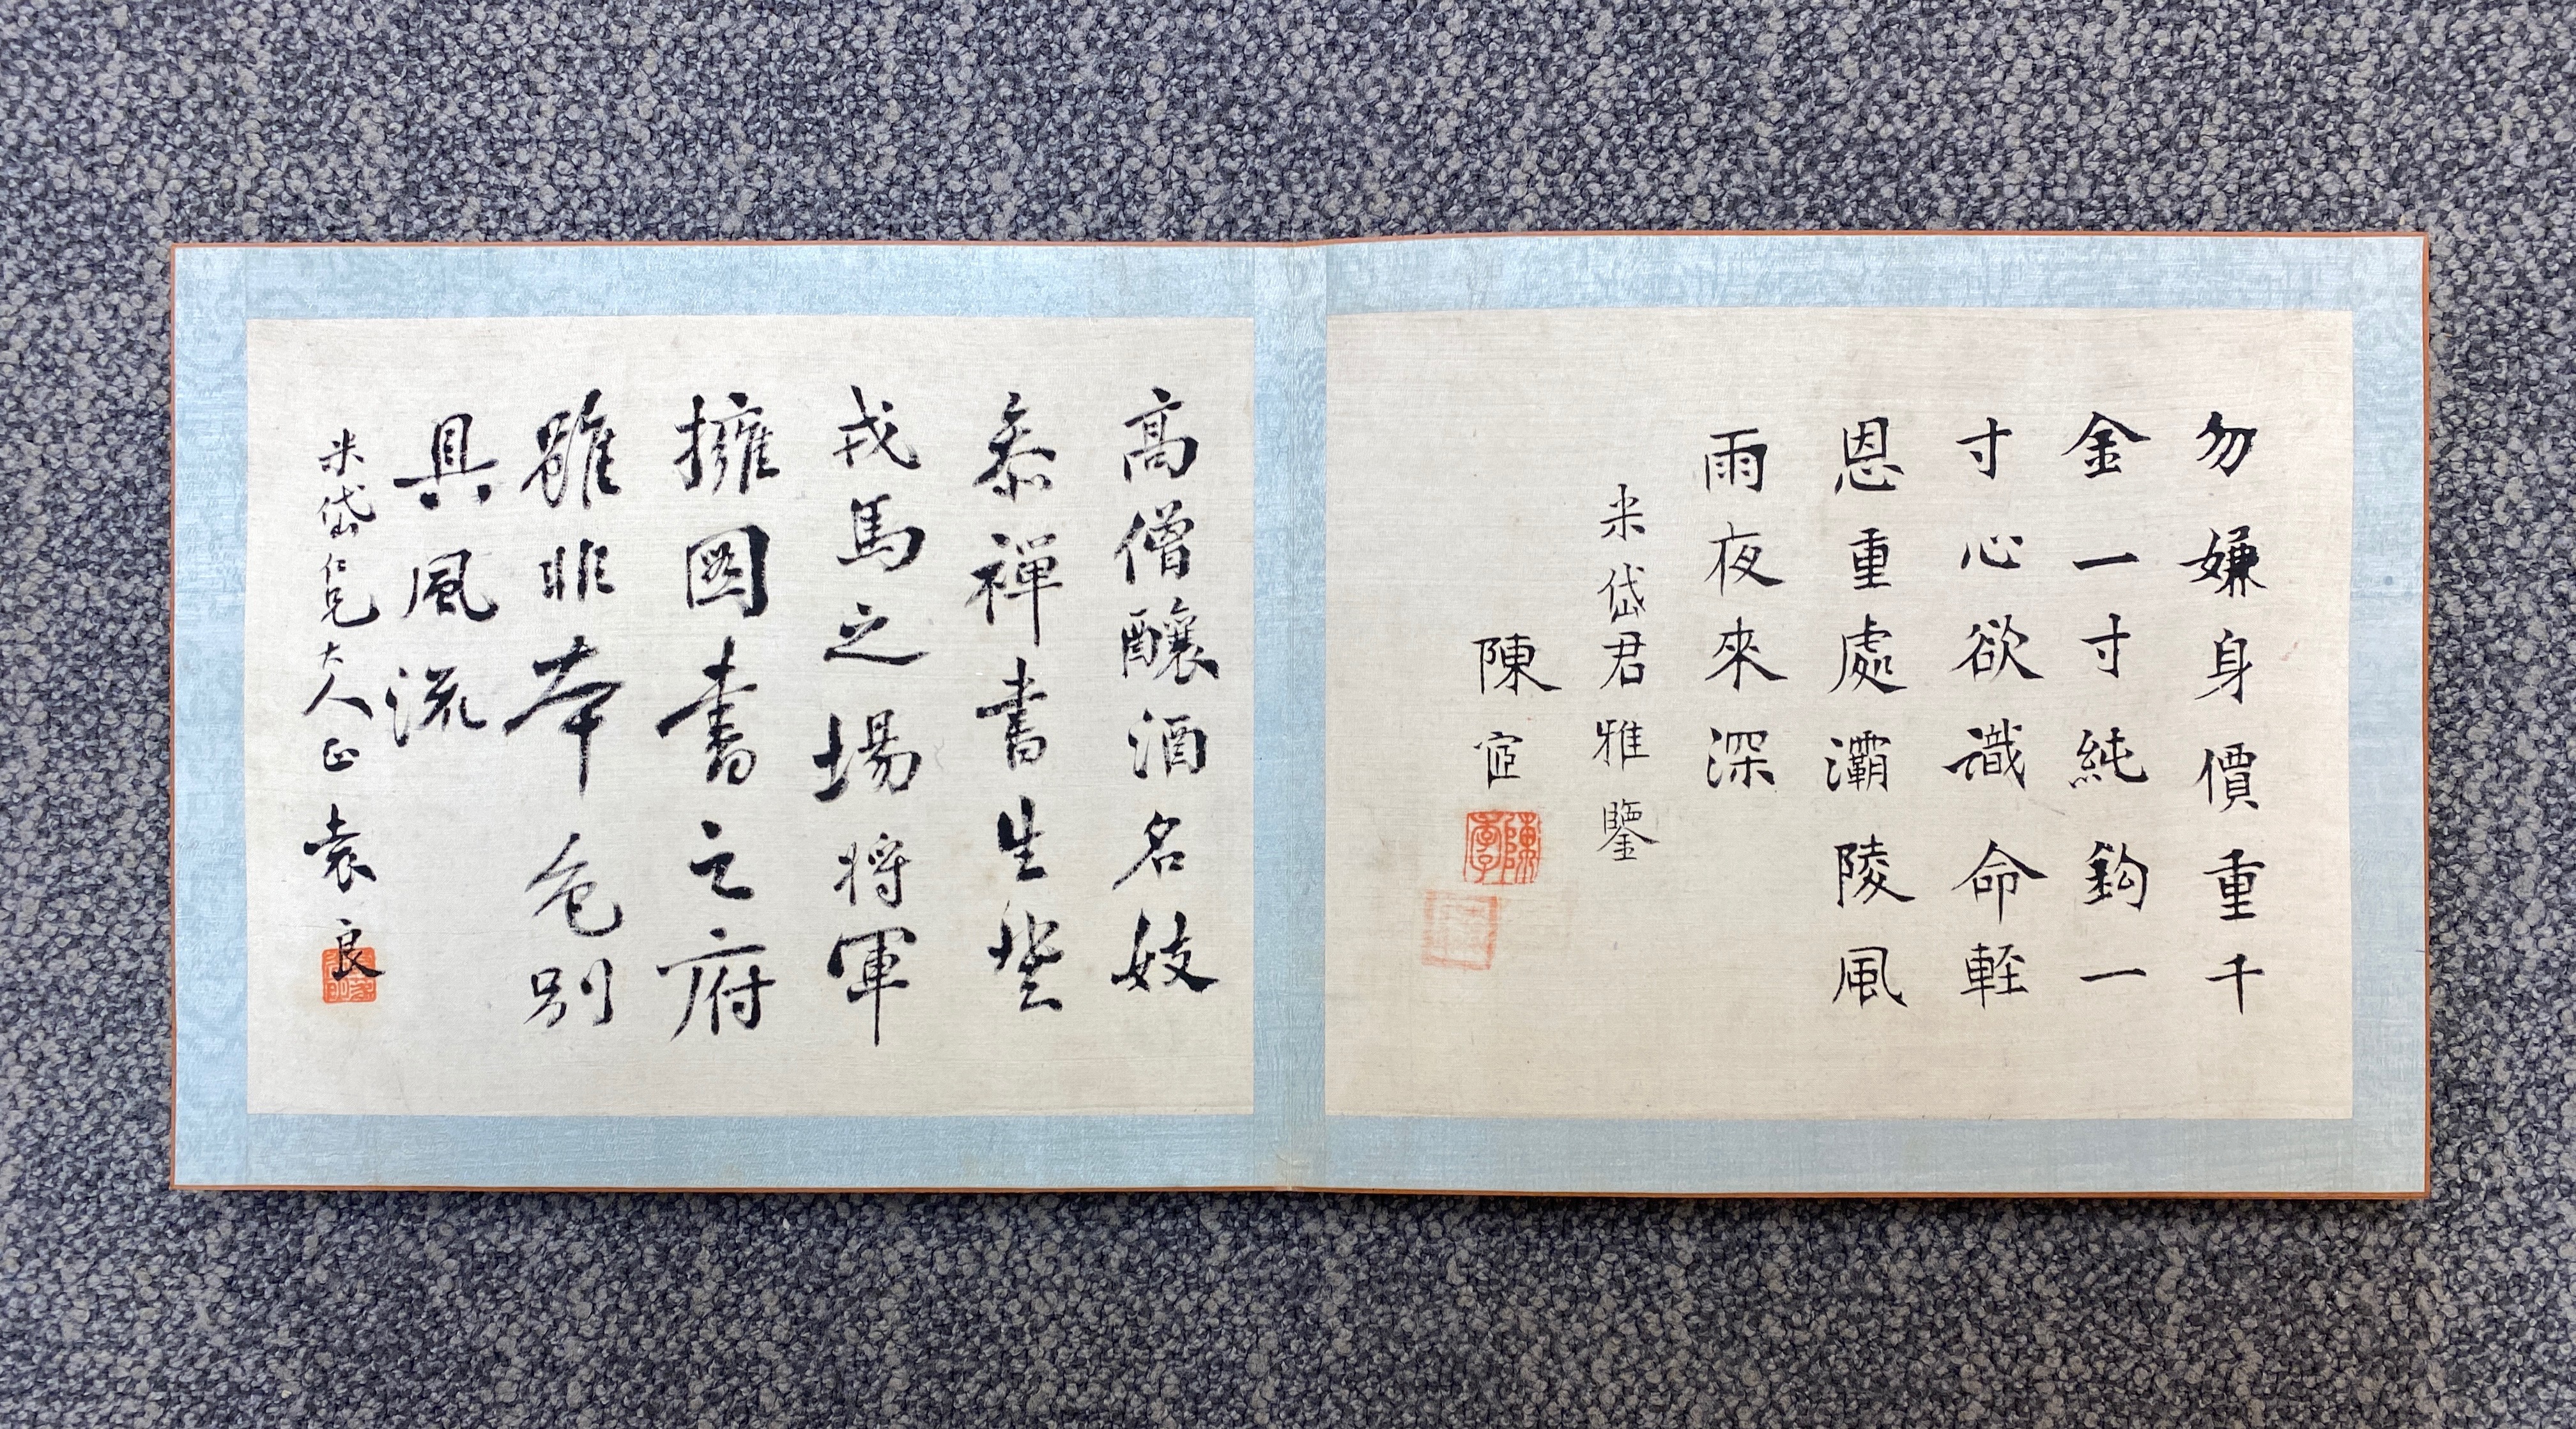 勿嫌身價重千
金一寸純鈎一
寸心欲識命輕
恩重處灞陵風
雨夜來深
米岱君雅鑒
陳宧
高僧釀酒名妓
叅禪書生登
戎馬之場將軍
擁圖書之府
雖非本色別
具風流
米岱仁兄大人正 袁良